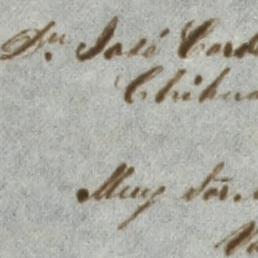 Dn. José Cord
Chihua
Muy Sor.